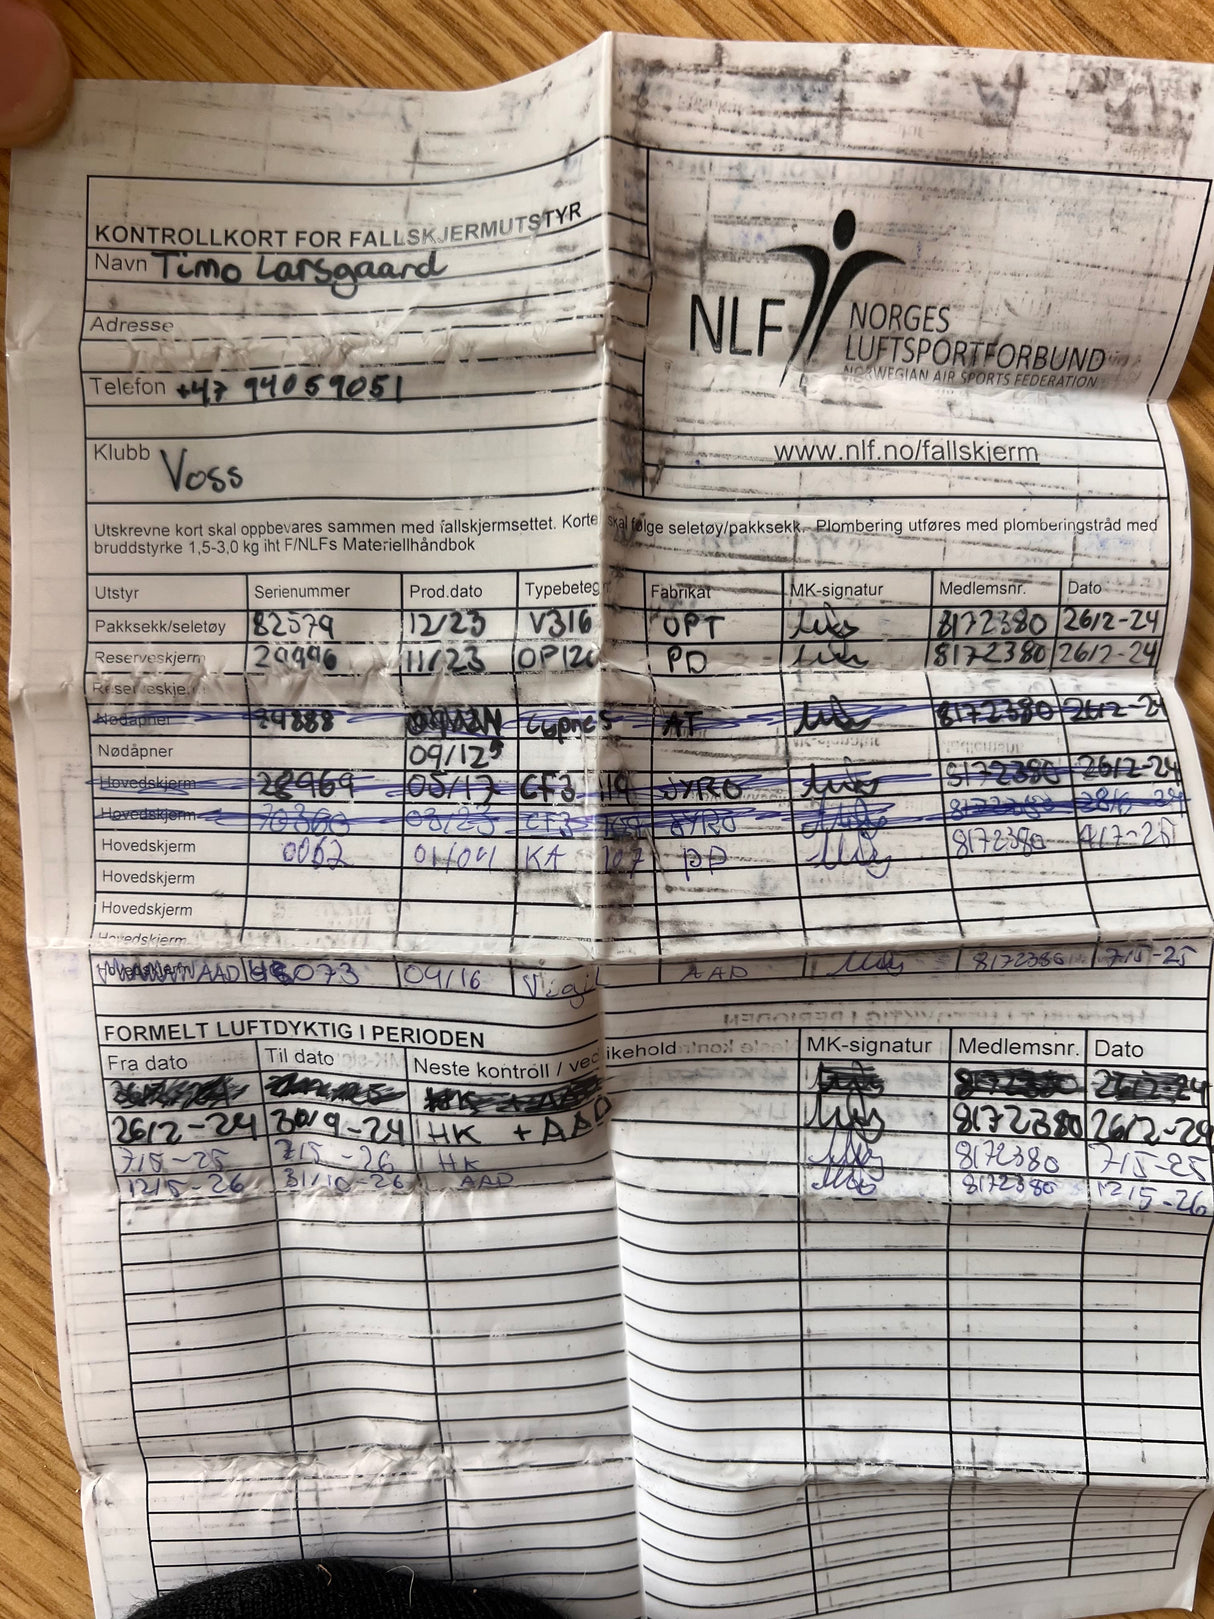 KONTROLLKORT FOR FALLSKJERMUTSTYR
Navn Timo Larsgaard
Adresse
Telefon +47 94059051
Klubb Voss
NLF NORGES
LUFTSPORTFORBUND
NORWEGIAN AIR SPORTS FEDERATION
www.nlf.no/fallskjerm
Utskrevne kort skal oppbevares sammen med fallskjermsettet. Korte skal følge seletøy/pakksekk. Plombering utføres med plomberingstråd med
bruddstyrke 1,5-3,0 kg iht F/NLFs Materiellhåndbok
Utstyr Serienummer Prod.dato Typebeteg Fabrikat MK-signatur Medlemsnr. Dato
Pakksekk/seletøy 82579 12/23 V316 UPT 8172380 26/2-24
Reserveskjerm 29996 11/23 OP120 PD 8172380 26/2-24
Reserveskje
Nødåpner 79888 Cypres AT 8172380 26/2-24
Nødåpner 09/12
Hovedskjerm 28969 05/17 CF3 119 JYRO 8172380 26/2-24
Hovedskjerm 03/23 CF3 JYRO 8172380
Hovedskjerm 0062 01/04 KA 107 PP 8172380 4/7-25
Hovedskjerm
Hovedskjerm
Hovedskjerm
AAD 073 04/16 Vigil AAD 8172380 7/5-25
FORMELT LUFTDYKTIG I PERIODEN
Fra dato Til dato Neste kontroll / ved ikehold MK-signatur Medlemsnr. Dato
8172380 26/2-24
26/2-24 30/9-24 HK + AAD 8172380 26/2-24
7/5-25 7/5-26 HK 8172380 7/5-25
12/5-26 31/10-26 AAD 8172380 12/5-26